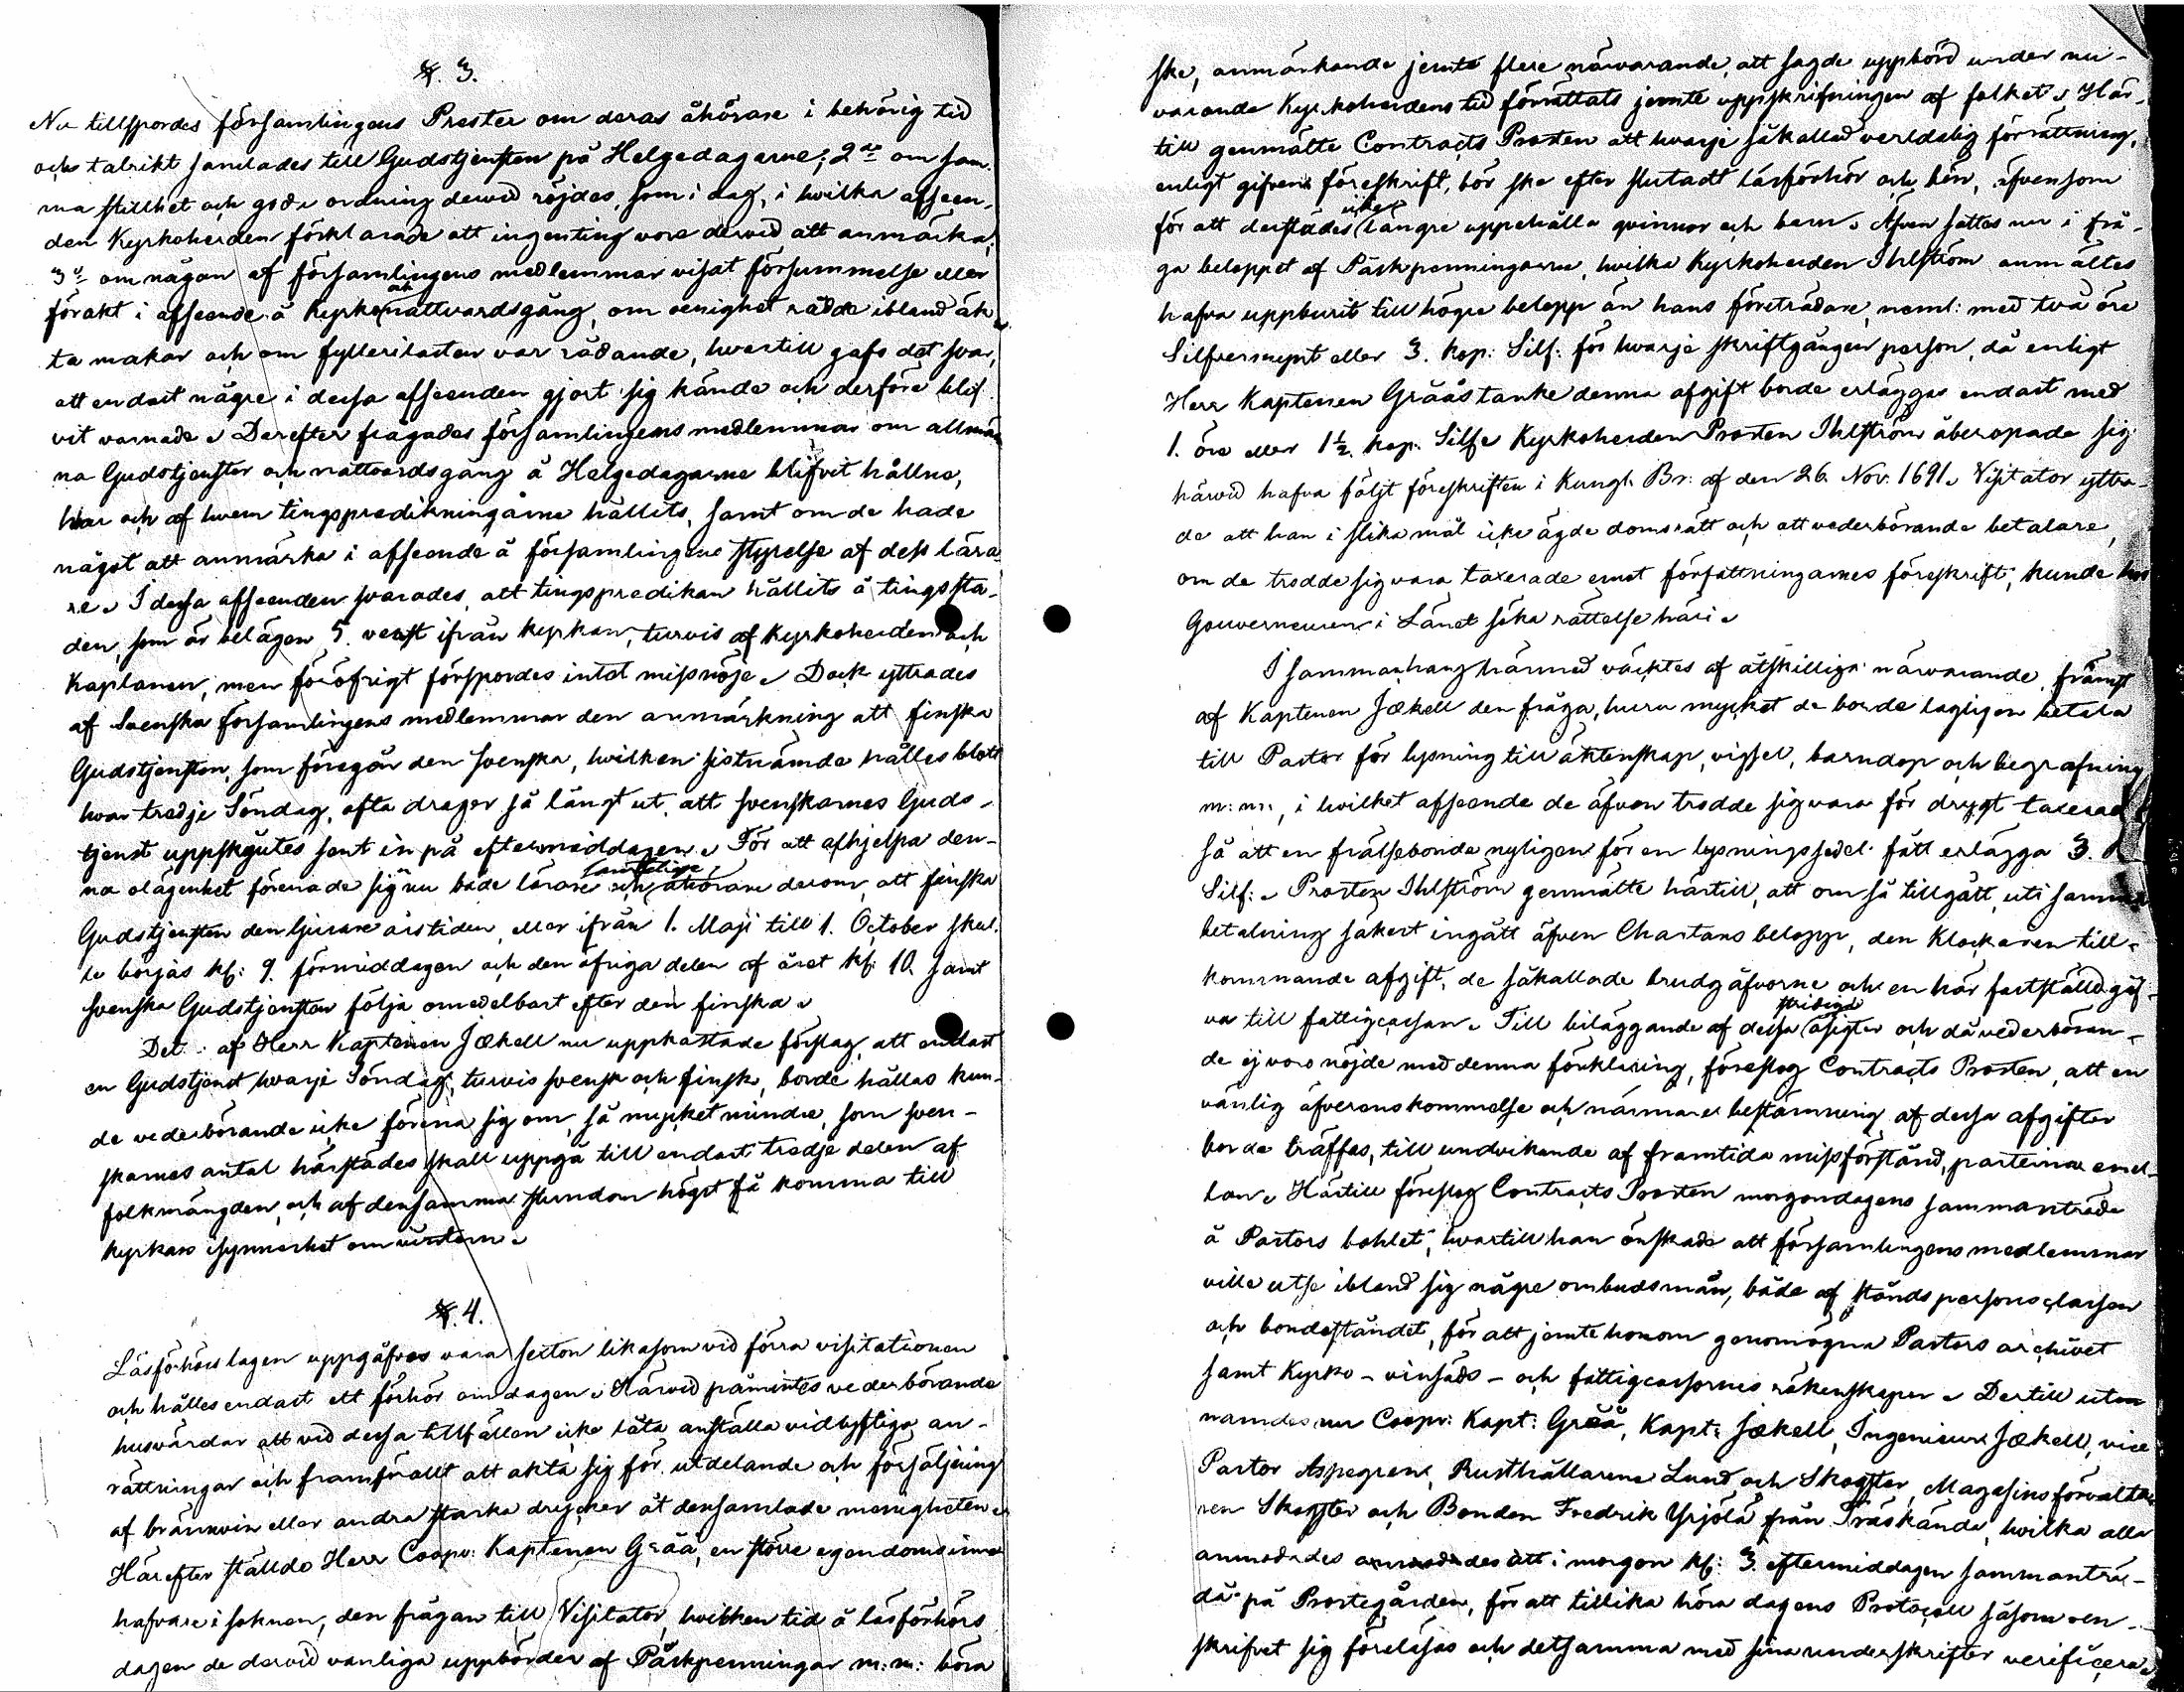 §. 3.
Nu tillspordes församlingens Prester om deras åhörare i behörig tid
och talrikt samlades till Gudstjensten på Helgedagarne; 2:o om sam-
ma stillhet och goda ordning dervid röjdes, som i dag, i hvilka afseen-
den Kyrkoherden förklarade att ingenting vore dervid att anmärka;
3:o om någon af församlingens medlemmar visat försummelse eller
förakt i afseende å Kyrko och nattvardsgång, om oenighet rådde ibland äk-
ta makar och om fyllerilasten var rådande, hvartill gafs det svar,
att endast någre i dessa afseenden gjort sig kände och derföre blif-
vit varnade. Derefter frågades församlingens medlemmar om allmän-
na Gudstjenster och nattvardsgång å Helgedagarne blifvit hållne,
hvar och af hvem tingspredikningarne hållits, samt om de hade
något att anmärka i afseende å församlingens styrelse af dess lära-
re. I dessa afseenden svarades, att tingspredikan hållits å tingssta-
den, som är belägen 5. verst ifrån kyrkan, turvis af Kyrkoherden och
Kaplanen, men föröfrigt förspordes intet missnöje. Dock yttrades
af Svenska församlingens medlemmar den anmärkning att finska
Gudstjensten, som föregår den svenska, hvilken sistnämde hålles blott
hvar tredje Söndag, ofta drager så långt ut, att svenskarnes Guds-
tjenst uppskjutes sent in på eftermiddagen. För att afhjelpa den-
na olägenhet förenade sig nu både lärare och samtelige åhörare derom, att finska
Gudstjensten den ljusare årstiden, eller ifrån 1. Maji till 1. October skul-
le börjas kl: 9. förmiddagen och den öfriga delen af året kl: 10. samt
svenska Gudstjensten följa omedelbart efter den finska.
Det af Herr Kaptenen Jækell nu uppkastade förslag, att endast
en Gudstjenst hvarje Söndag, turvis svensk och finsk, borde hållas kun-
de vederbörande icke förena sig om, så mycket mindre, som sven-
skarnes antal härstädes skall uppgå till endast tredje delen af
folkmängden, och af densamma stundom högst få komma till
kyrkan isynnerhet om vintern.
§. 4.
Läsförhörslagen uppgåfvos vara sexton likasom vid förra visitationen
och hålles endast ett förhör om dagen. Härvid påmintes vederbörande
husvärdar att vid dessa tillfällen icke låta anställa vidlyftiga an-
rättningar och framförallt att akta sig för utdelande och försäljning
af brännvin eller andra starka drycker åt den samlade menigheten.
Härefter ställde Herr Coopv: Kaptenen Gråå, en större egendomsinne-
hafvare i soknen, den frågan till Visitator, hvilken tid å läsförhörs
dagen de dervid vanliga uppbörder af Påskpenningar m:m: böra
ske, anmärkande jemte flere närvarande, att sagde uppbörd under nu-
varande Kyrkoherdens tid förrättats jemte uppskrifningen af folket. Här-
till genmälte Contracts Prosten att hvarje såkallad verldslig förrättning,
enligt gifven föreskrift, bör ske efter slutadt läsförhör och bön, äfvensom
för att derstädes icke längre uppehålla qvinnor och barn. Äfven sattes nu i frå-
ga beloppet af Påskpenningarna, hvilka Kyrkoherden Ihlström anmältes
hafva uppburit till högre belopp än hans företrädare, neml: med två öre
Silfvermynt eller 3. kop: Silf: för hvarje skriftgången person, då enligt
Herr Kaptenen Gråås tanke denna afgift borde erläggas endast med
1. öre eller 1½ kop: Silf. Kyrkoherden Prosten Ihlström åberopade sig
härvid hafva följt föreskriften i Kungl. Br: af den 26. Nov. 1691. Visitator yttra-
de att han i slika mål icke ägde domsrätt och att vederbörande betalare,
om de trodde sig vara taxerade emot författningarnes föreskrift, kunde hos
Gouverneuren i Länet söka rättelse häri.
I sammanhang härmed väcktes af åtskilliga närvarande, främst
af Kaptenen Jækell den fråga, huru mycket de borde lagligen betala
till Pastor för lysning till äktenskap, vigsel, barndop och begrafning
m:m:, i hvilket afseende de äfven trodde sig vara för drygt taxerade
så att en frälsebonde nyligen för en lysningssedel fått erlägga 3.
Silf:. Prosten Ihlström genmälte härtill, att om så tillgått, uti samma
betalning säkert ingått äfven Chartans belopp, den Klockaren till-
kommande afgift, de såkallade brudgåfvorne och en här fastställd gåf-
va till fattigcassan. Till biläggande af dessa stridiga åsigter och då vederböran-
de ej voro nöjde med denna förklaring, föreslog Contracts Prosten, att en
vänlig öfverenskommelse och närmare bestämning af dessa afgifter
borde träffas, till undvikande af framtida missförstånd, parterna emel-
lan. Härtill föreslog Contracts Prosten morgondagens sammanträde
å Pastors bohlet, hvartill han önskade att församlingens medlemmar
ville utse ibland sig någre ombudsmän, både af Ståndspersonsclassen
och bondeståndet, för att jemte honom genomögna Pastors archivet
samt Kyrko- vinsäds- och fattigcassornes räkenskaper. Dertill utsen
namdes nu Coopv: Kapt: Gråå, Kapt: Jækell, Ingenieur Jækell, vice
Pastor Aspegren, Rusthållarene Lund och Skogster, Magasinsförvalta-
ren Skogster och Bonden Fredrik Yrjölä från Träskända, hvilka alla
anmodades att i morgon kl: 3. eftermiddagen sammanträ-
da på Prostegården, för att tillika höra dagens Protocoll såsom ren-
skrifvet sig föreläsas och detsamma med sina underskrifter verificera.